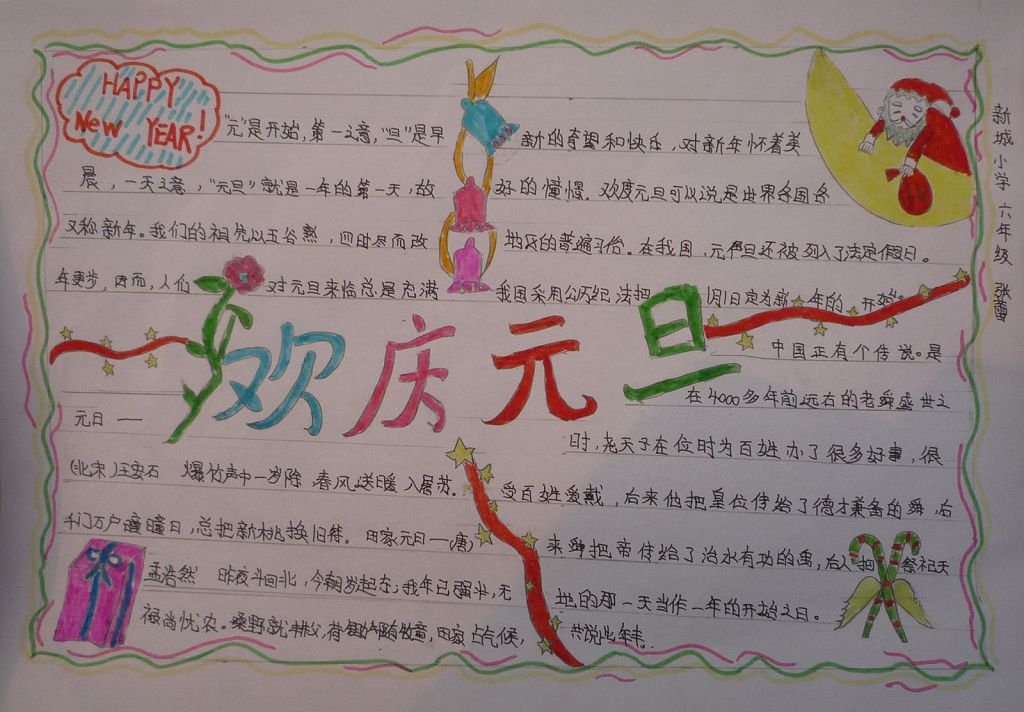 HAPPY
New YEAR!
"元"是开始,第一之意,"旦"是早
晨,一天之意,"元旦"就是一年的第一天,故
又称新年。我们的祖先以五谷熟,四时尽而改
年更岁,因而,人们
对元旦来临总是充满
新的希望和快乐,对新年怀着美
好的憧憬.欢度元旦可以说是世界各国各
地区的普遍习俗。在我国,元旦还被列入了法定假日。
我国采用公历纪法把
1月1日定为新年的一开始。
欢庆元旦
元日 —
(北宋)王安石 爆竹声中一岁除 春风送暖入屠苏.
千门万户曈曈日,总把新桃换旧符。 田家元日—(唐)
孟浩然 昨夜斗回北,今朝岁起东;我年已强半,无
禄尚忧农。桑野就耕父,荷锄随牧童,田家占气候,
共说此年丰.
中国正有个传说。是
在4000多年前远古的老舜盛世之
时,尧天子在位时为百姓办了很多好事,很
受百姓爱戴,后来他把皇位传给了德才兼备的舜,后
来舜把帝传给了治水有功的禹,后人把祭祀天
地的那一天当作一年的开始之日。
新城小学 六年级 张蕾